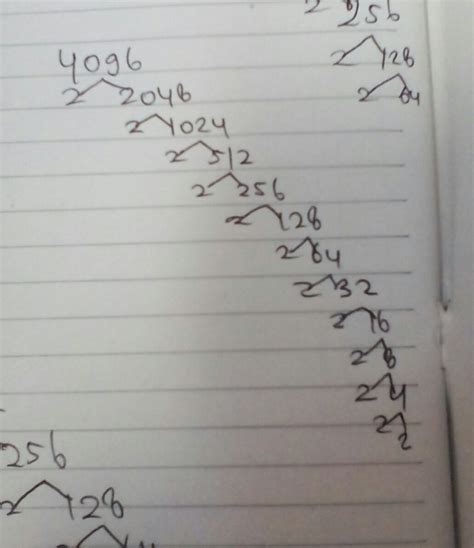 2 256
2 128
2 64
4096
2 2048
2 1024
2 512
2 256
2 128
2 64
2 32
2 16
2 8
2 4
2 2
256
2 128
2